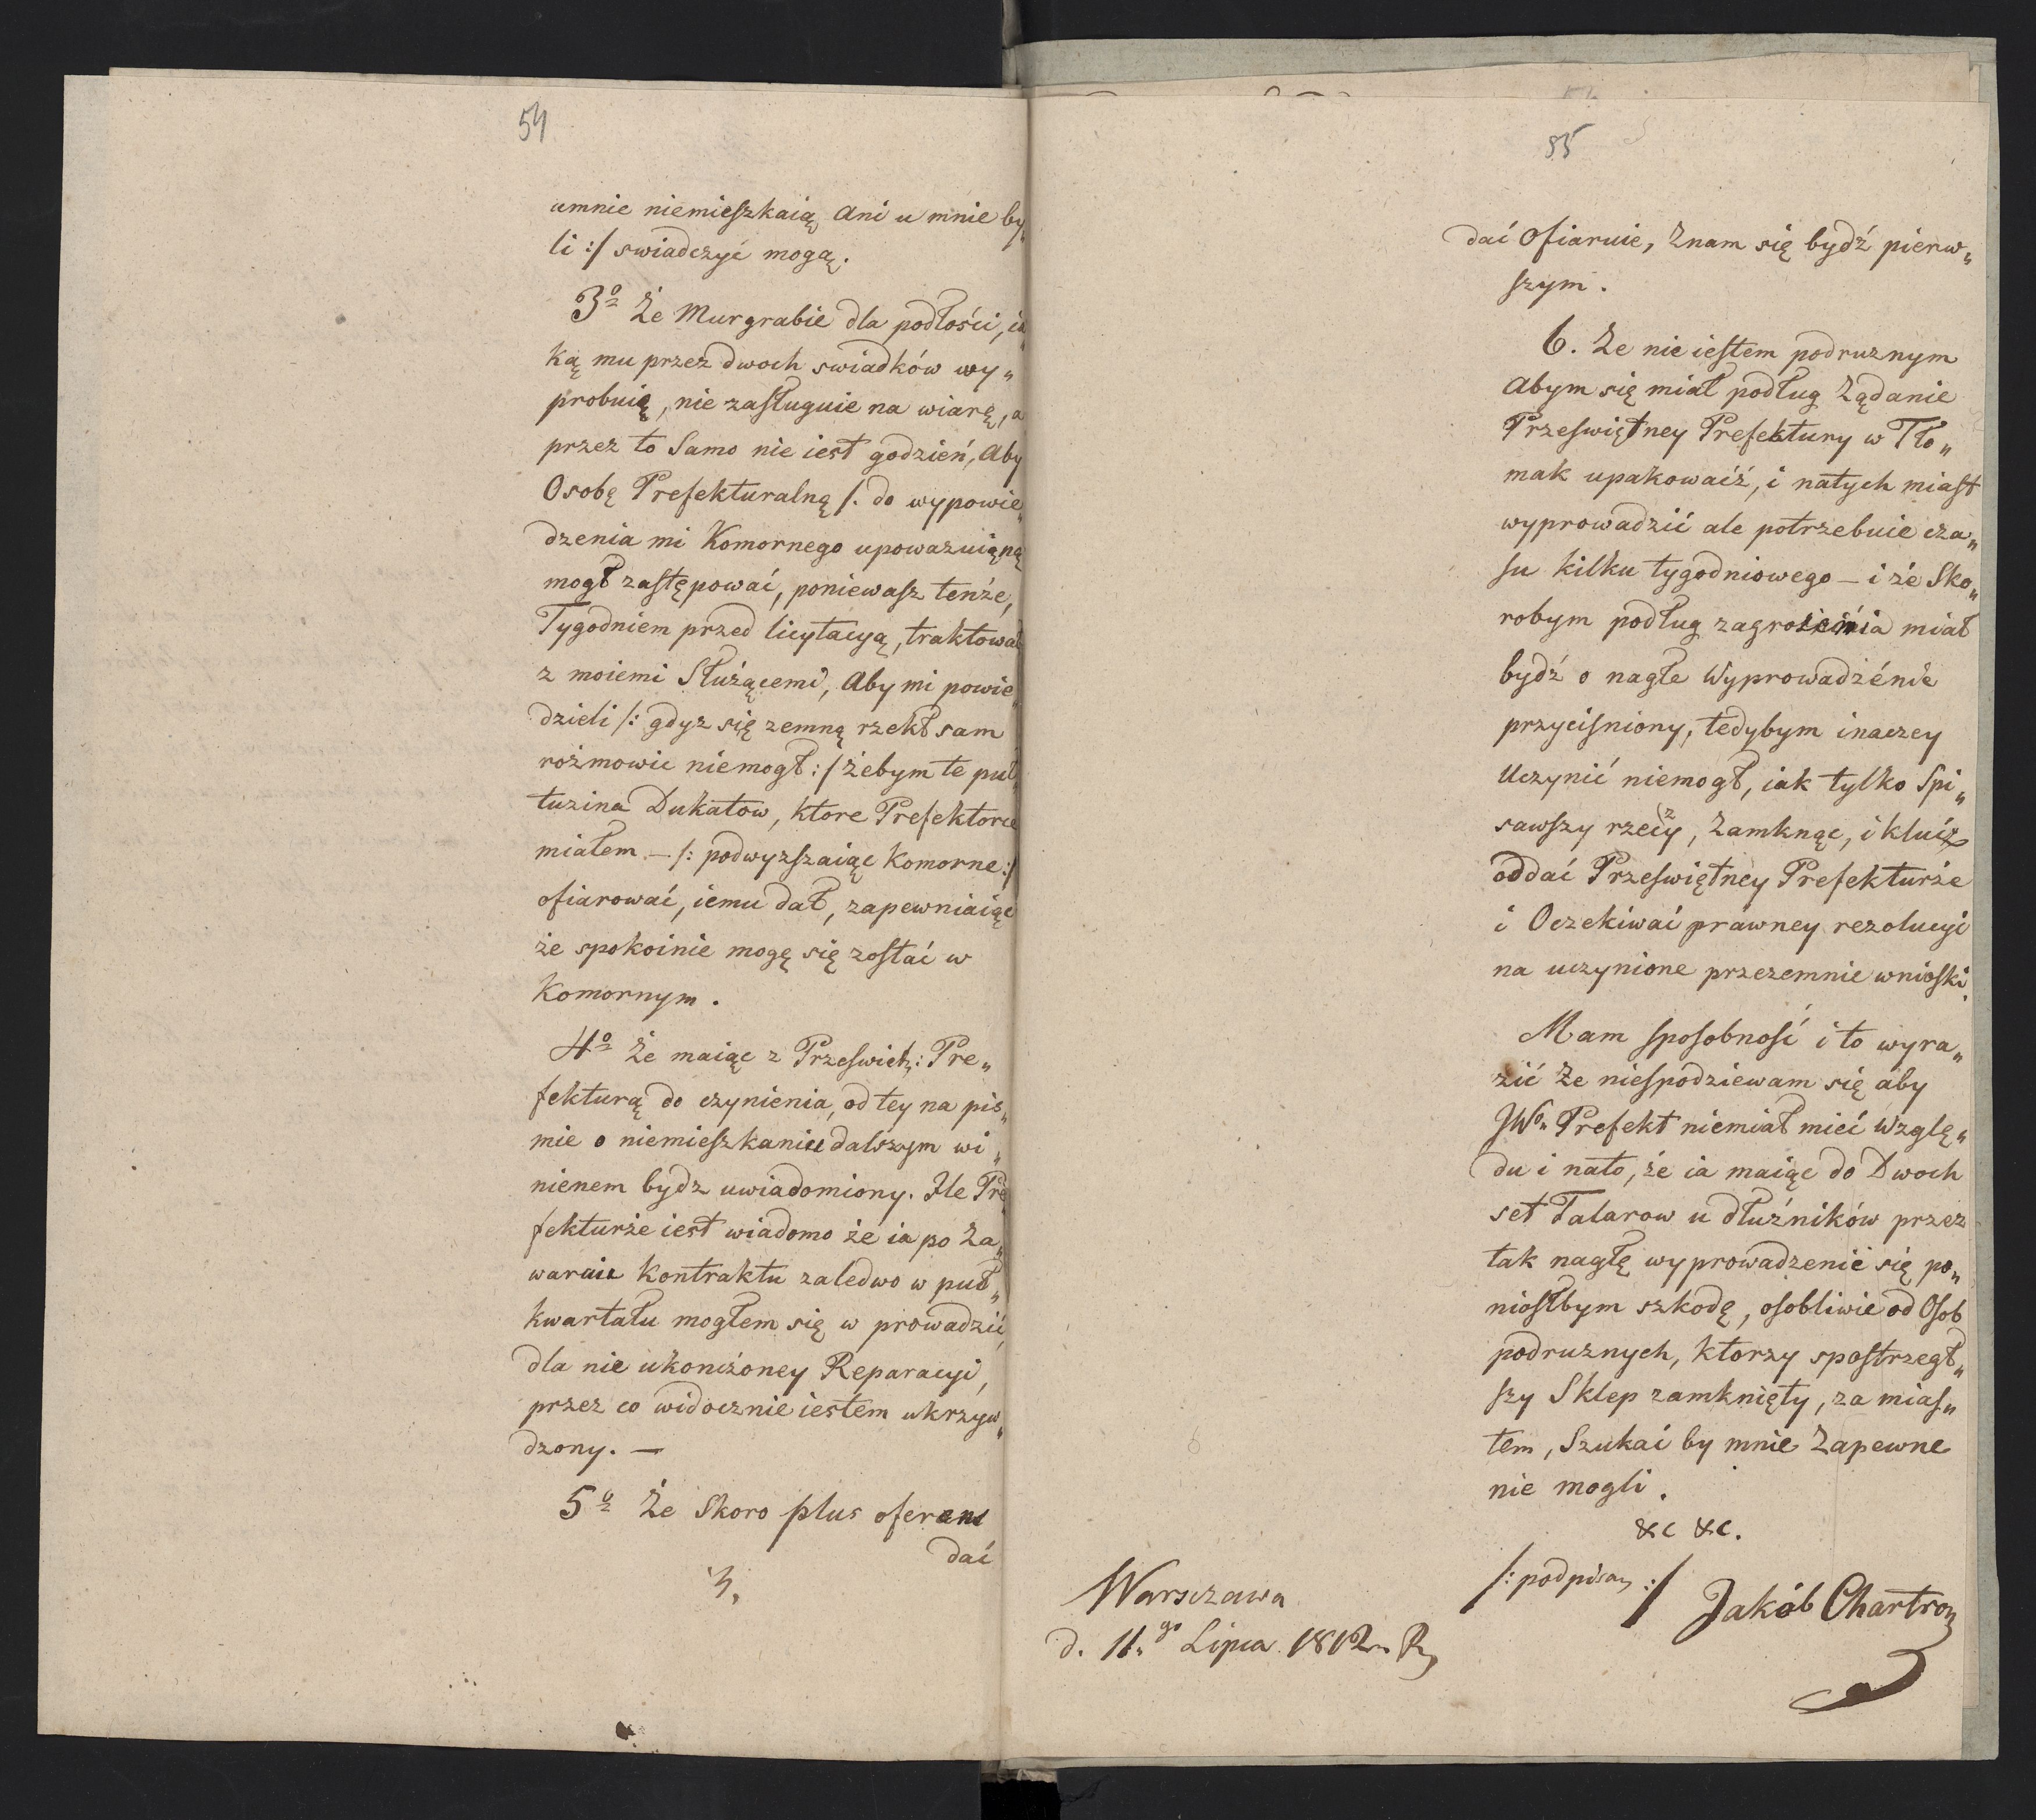 54
umnie niemieszkaią ani u mnie by„
li :/ swiadczyć mogą.
3o Że Murgrabie dla podłości, ia„
ką mu przez dwoch swiadków wy„
probuię, nie zasługuie na wiarę, a
przez to Samo nie iest godzień, Aby
Osobę Prefekturalną /: do wypowie„
dzenia mi Komornego upowazniąną
mogł zastępować, poniewasz tenże,
Tygodniem przed licytacyą, traktował
z moiemi Służącemi, Aby mi powie„
dzieli /: gdyz się zemną rzekł sam
rożmowic niemogł :/ żebym te puł„
tuzina Dukatow, ktore Prefektorce
miałem — /: podwyzszaiąc Komorne :/
ofiarować, iemu dał, zapewniaiąc
że spokoinie mogę się zostać w
Komornym.
4o Że maiąc z Przeswiet: Pre„
fekturą do czynienia, od tey na pis„
mie o niemieszkaniu dalszym wi„
nienem bydz uwiadomiony. Ile Pre„
fekturże iest wiadomo że ia po Za„
warciu Kontraktu zaledwo w puł„
kwartału mogłem się w prowadzić,
dla nie ukonczoney Reparacyi,
przez co widocznie iestem ukrzyw„
dzony. —
5o Że Skoro plus oferent
dać
3.
55
dać Ofiaruie, Znam się bydź pierw„
szym.
6. Ze nie iestem podruznym
Abym się miał podług Ządanie
Przeswiętney Prefektury w Tło„
mak upakowaćź, i natych miast
wyprowadzić ale potrzebuie cza„
su kilku tygodniowego — i że Sko„
robym podług zagrożenia miał
bydź o nagłe Wyprowadzénie
przyciśniony, tedybym inaczey
Uczynić niemogł, iak tylko Spi„
sawszy rzeczy, Zamknąc, i klucz
oddać Przeswiętney Prefekturże
i Oczekiwać prawney rezolucyi
na uczynione przezemnie wnioski.
Mam sposobność i to wyra„
zić Ze niespodziewam się aby
JWo„ Prefekt niemiał mieć Wzglę„
du i nato, że ia maiąc do Dwoch
set Talarow u dłużników przez
tak nagłę wyprowadzenié się po„
niosłbym szkodę, osobliwie od Osob
podruznych, ktorzy spostrzegł„
szy Sklep zamknięty, za mias„
tem, Szukać by mnie Zapewne
nie mogli.
&c &c.
/: podpisan :/ Jakób Chartron
Warszawa
d. 11.go Lipca 1812. R.